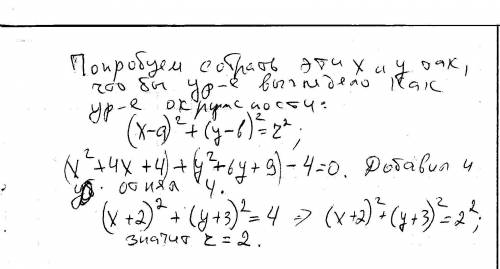 Попробуем собрать эти x и y так,
что бы ур-е выглядело как
ур-е окружности:
(x-a)² + (y-b)² = r²;
(x² + 4x + 4) + (y² + 6y + 9) - 4 = 0. Добавил и
отнял 4.
(x+2)² + (y+3)² = 4 => (x+2)² + (y+3)² = 2²;
значит r = 2.